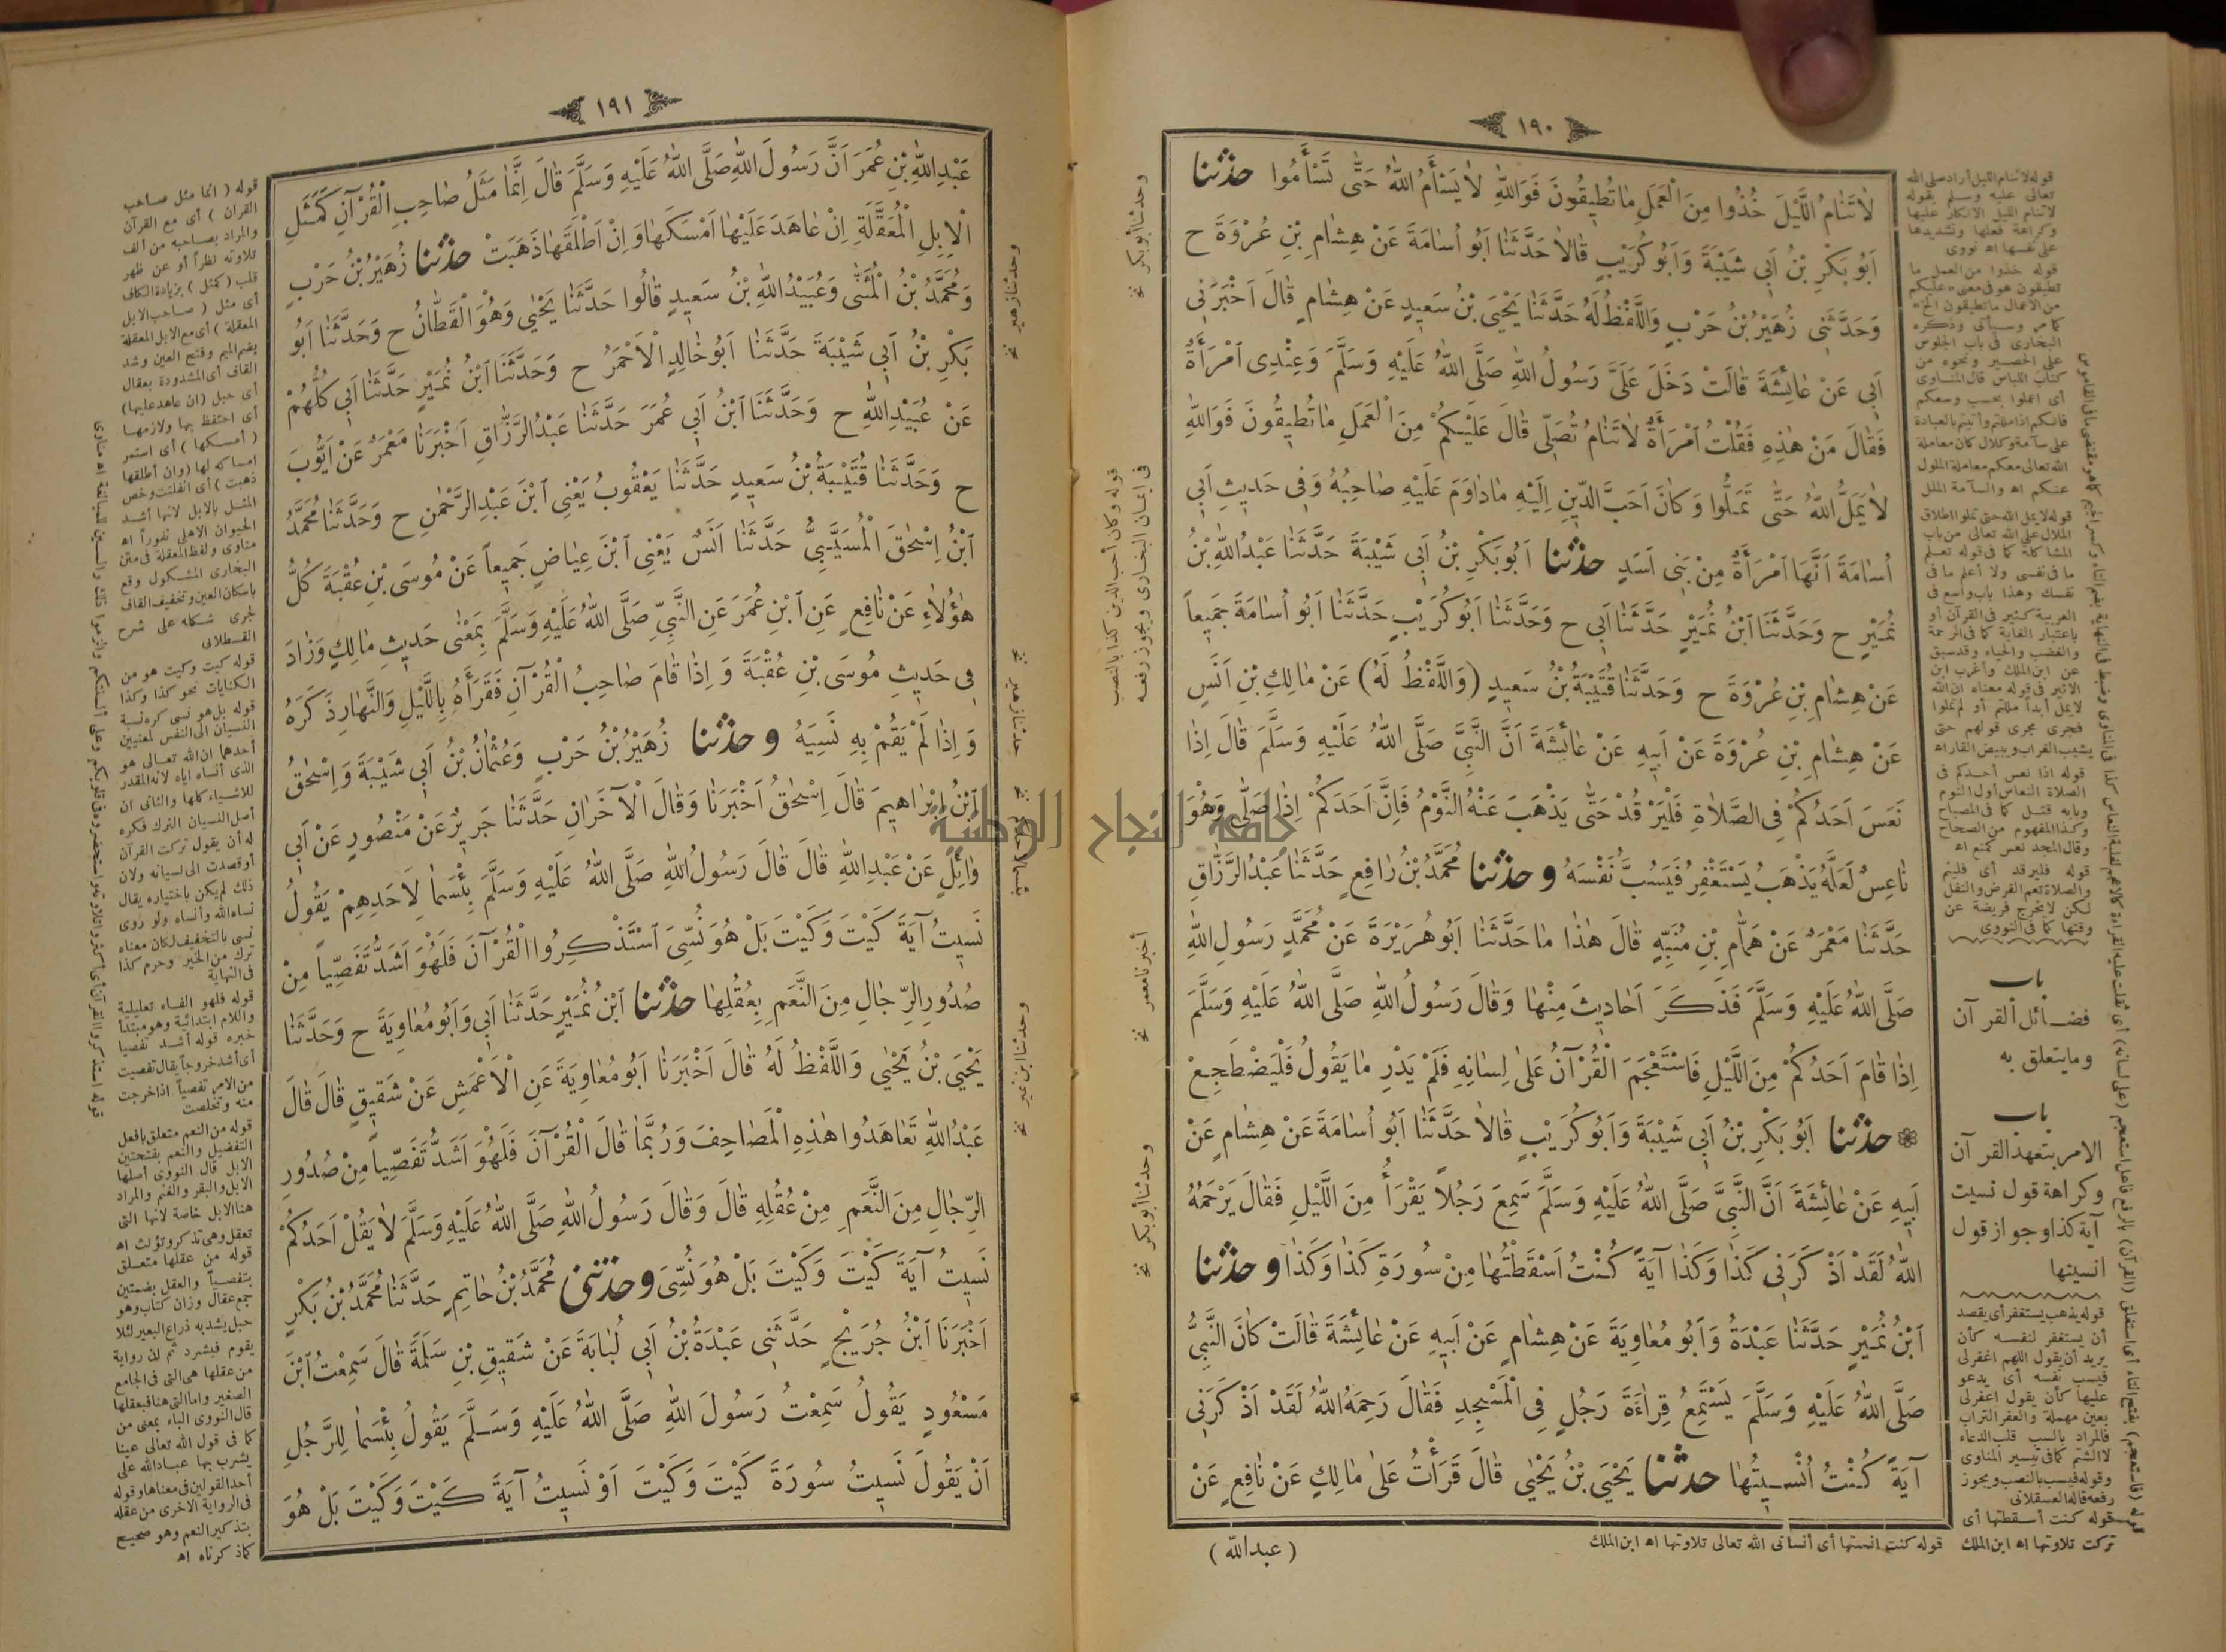 ١٩٠
لَا تَنَامُ اللَّيْلَ خُذُوا مِنَ الْعَمَلِ مَا تُطِيقُونَ فَوَاللّٰهِ لَا يَسْأَمُ اللّٰهُ حَتَّى تَسْأَمُوا حدثنا
أَبُو بَكْرِ بْنُ أَبِي شَيْبَةَ وَأَبُو كُرَيْبٍ قَالَا حَدَّثَنَا أَبُو أُسَامَةَ عَنْ هِشَامِ بْنِ عُرْوَةَ ح
وَحَدَّثَنِي زُهَيْرُ بْنُ حَرْبٍ وَاللَّفْظُ لَهُ حَدَّثَنَا يَحْيَى بْنُ سَعِيدٍ عَنْ هِشَامٍ قَالَ أَخْبَرَنِي
أَبِي عَنْ عَائِشَةَ قَالَتْ دَخَلَ عَلَيَّ رَسُولُ اللّٰهِ صَلَّى اللّٰهُ عَلَيْهِ وَسَلَّمَ وَعِنْدِي امْرَأَةٌ
فَقَالَ مَنْ هٰذِهِ فَقُلْتُ امْرَأَةٌ لَا تَنَامُ تُصَلِّي قَالَ عَلَيْكُمْ مِنَ الْعَمَلِ مَا تُطِيقُونَ فَوَاللّٰهِ
لَا يَمَلُّ اللّٰهُ حَتَّى تَمَلُّوا وَكَانَ أَحَبَّ الدِّينِ إِلَيْهِ مَا دَاوَمَ عَلَيْهِ صَاحِبُهُ وَفِي حَدِيثِ أَبِي
أُسَامَةَ أَنَّهَا امْرَأَةٌ مِنْ بَنِي أَسَدٍ حدثنا أَبُو بَكْرِ بْنُ أَبِي شَيْبَةَ حَدَّثَنَا عَبْدُ اللّٰهِ بْنُ
نُمَيْرٍ ح وَحَدَّثَنَا ابْنُ نُمَيْرٍ حَدَّثَنَا أَبِي ح وَحَدَّثَنَا أَبُو كُرَيْبٍ حَدَّثَنَا أَبُو أُسَامَةَ جَمِيعاً
عَنْ هِشَامِ بْنِ عُرْوَةَ ح وَحَدَّثَنَا قُتَيْبَةُ بْنُ سَعِيدٍ (وَاللَّفْظُ لَهُ) عَنْ مَالِكِ بْنِ أَنَسٍ
عَنْ هِشَامِ بْنِ عُرْوَةَ عَنْ أَبِيهِ عَنْ عَائِشَةَ أَنَّ النَّبِيَّ صَلَّى اللّٰهُ عَلَيْهِ وَسَلَّمَ قَالَ إِذَا
نَعَسَ أَحَدُكُمْ فِي الصَّلَاةِ فَلْيَرْقُدْ حَتَّى يَذْهَبَ عَنْهُ النَّوْمُ فَإِنَّ أَحَدَكُمْ إِذَا صَلَّى وَهُوَ
نَاعِسٌ لَعَلَّهُ يَذْهَبُ يَسْتَغْفِرُ فَيَسُبُّ نَفْسَهُ وحدثنا مُحَمَّدُ بْنُ رَافِعٍ حَدَّثَنَا عَبْدُ الرَّزَّاقِ
حَدَّثَنَا مَعْمَرٌ عَنْ هَمَّامِ بْنِ مُنَبِّهٍ قَالَ هٰذَا مَا حَدَّثَنَا أَبُو هُرَيْرَةَ عَنْ مُحَمَّدٍ رَسُولِ اللّٰهِ
صَلَّى اللّٰهُ عَلَيْهِ وَسَلَّمَ فَذَكَرَ أَحَادِيثَ مِنْهَا وَقَالَ رَسُولُ اللّٰهِ صَلَّى اللّٰهُ عَلَيْهِ وَسَلَّمَ
إِذَا قَامَ أَحَدُكُمْ مِنَ اللَّيْلِ فَاسْتَعْجَمَ الْقُرْآنُ عَلَى لِسَانِهِ فَلَمْ يَدْرِ مَا يَقُولُ فَلْيَضْطَجِعْ
❁ حدثنا أَبُو بَكْرِ بْنُ أَبِي شَيْبَةَ وَأَبُو كُرَيْبٍ قَالَا حَدَّثَنَا أَبُو أُسَامَةَ عَنْ هِشَامٍ عَنْ
أَبِيهِ عَنْ عَائِشَةَ أَنَّ النَّبِيَّ صَلَّى اللّٰهُ عَلَيْهِ وَسَلَّمَ سَمِعَ رَجُلاً يَقْرَأُ مِنَ اللَّيْلِ فَقَالَ يَرْحَمُهُ
اللّٰهُ لَقَدْ أَذْكَرَنِي كَذَا وَكَذَا آيَةً كُنْتُ أَسْقَطْتُهَا مِنْ سُورَةِ كَذَا وَكَذَا وحدثنا
ابْنُ نُمَيْرٍ حَدَّثَنَا عَبْدَةُ وَأَبُو مُعَاوِيَةَ عَنْ هِشَامٍ عَنْ أَبِيهِ عَنْ عَائِشَةَ قَالَتْ كَانَ النَّبِيُّ
صَلَّى اللّٰهُ عَلَيْهِ وَسَلَّمَ يَسْتَمِعُ قِرَاءَةَ رَجُلٍ فِي الْمَسْجِدِ فَقَالَ رَحِمَهُ اللّٰهُ لَقَدْ أَذْكَرَنِي
آيَةً كُنْتُ أُنْسِيتُهَا حدثنا يَحْيَى بْنُ يَحْيَى قَالَ قَرَأْتُ عَلَى مَالِكٍ عَنْ نَافِعٍ عَنْ
(عبدالله)
قوله لا تنام الليل أراد صلى الله
تعالى عليه وسلم بقوله
لا تنام الليل الانكار عليها
وكراهة فعلها وتشديدها
على نفسها اه نووى
قوله خذوا من العمل ما
تطيقون هو فى معنى عليكم
من الأعمال ما تطيقون الخ
كما مر وسيأتى وذكره
البخارى فى باب الجلوس
على الحصير ونحوه من
كتاب اللباس قال المناوى
أى اعملوا بحسب وسعكم
فانكم اذا مللتم وأتيتم بالعبادة
على سآمة وكلال كان معاملة
الله تعالى معكم معاملة الملول
عنكم اه والسآمة الملل
قوله لا يمل الله حتى تملوا اطلاق
الملال على الله تعالى من باب
المشاكلة كما فى قوله تعلم
ما فى نفسى ولا أعلم ما فى
نفسك وهذا باب واسع فى
العربية كثير فى القرآن أو
باعتبار الغاية كما فى الرحمة
والغضب والحياء وقد سبق
عن ابن الملك وأغرب ابن
الاثير فى قوله معناه ان الله
لا يمل أبداً مللتم أو لم تملوا
فجرى مجرى قولهم حتى
يشيب الغراب ويبيض القار اه
قوله اذا نعس أحدكم فى
الصلاة النعاس أول النوم
وبابه قتل كما فى المصباح
وكذا المفهوم من الصحاح
وقال المجد نعس كمنع اه
قوله فليرقد أى فلينم
والصلاة تعم الفرض والنفل
لكن لا يخرج فريضة عن
وقتها كما فى النووى
باب
فضائل القرآن
وما يتعلق به
باب
الامر بتعهد القرآن
وكراهة قول نسيت
آية كذا وجواز قول
انسيتها
قوله يذهب يستغفر أى يقصد
أن يستغفر لنفسه كأن
يريد أن يقول اللهم اغفرلى
فيسب نفسه أى يدعو
عليها كأن يقول اعفرلى
بعين مهملة والعفر التراب
فالمراد بالسب قلب الدعاء
لا الشتم كما فى تيسير المناوى
وقوله فيسب بالنصب ويجوز
رفعه قاله العسقلانى
قوله كنت أسقطتها أى
تركت تلاوتها اه ابن الملك
قوله كنت انسيتها أى أنسانى الله تعالى تلاوتها اه ابن الملك
وحدثنا أبو بكر نخ
قوله وكان أحب الدين كذا بالنصب
فى ايمان البخارى ويجوز رفعه
أخبرنا معمر نخ
وحدثنا أبو بكر نخ
جامعة النجاح الوطنية
١٩١
عَبْدِ اللّٰهِ بْنِ عُمَرَ أَنَّ رَسُولَ اللّٰهِ صَلَّى اللّٰهُ عَلَيْهِ وَسَلَّمَ قَالَ إِنَّمَا مَثَلُ صَاحِبِ الْقُرْآنِ كَمَثَلِ
الْإِبِلِ الْمُعَقَّلَةِ إِنْ عَاهَدَ عَلَيْهَا أَمْسَكَهَا وَإِنْ أَطْلَقَهَا ذَهَبَتْ حدثنا زُهَيْرُ بْنُ حَرْبٍ
وَمُحَمَّدُ بْنُ الْمُثَنَّى وَعُبَيْدُ اللّٰهِ بْنُ سَعِيدٍ قَالُوا حَدَّثَنَا يَحْيَى وَهُوَ الْقَطَّانُ ح وَحَدَّثَنَا أَبُو
بَكْرِ بْنُ أَبِي شَيْبَةَ حَدَّثَنَا أَبُو خَالِدٍ الْأَحْمَرُ ح وَحَدَّثَنَا ابْنُ نُمَيْرٍ حَدَّثَنَا أَبِي كُلُّهُمْ
عَنْ عُبَيْدِ اللّٰهِ ح وَحَدَّثَنَا ابْنُ أَبِي عُمَرَ حَدَّثَنَا عَبْدُ الرَّزَّاقِ أَخْبَرَنَا مَعْمَرٌ عَنْ أَيُّوبَ
ح وَحَدَّثَنَا قُتَيْبَةُ بْنُ سَعِيدٍ حَدَّثَنَا يَعْقُوبُ يَعْنِي ابْنَ عَبْدِ الرَّحْمٰنِ ح وَحَدَّثَنَا مُحَمَّدُ
ابْنُ إِسْحٰقَ الْمُسَيَّبِيُّ حَدَّثَنَا أَنَسٌ يَعْنِي ابْنَ عِيَاضٍ جَمِيعاً عَنْ مُوسَى بْنِ عُقْبَةَ كُلُّ
هٰؤُلَاءِ عَنْ نَافِعٍ عَنِ ابْنِ عُمَرَ عَنِ النَّبِيِّ صَلَّى اللّٰهُ عَلَيْهِ وَسَلَّمَ بِمَعْنَى حَدِيثِ مَالِكٍ وَزَادَ
فِي حَدِيثِ مُوسَى بْنِ عُقْبَةَ وَإِذَا قَامَ صَاحِبُ الْقُرْآنِ فَقَرَأَهُ بِاللَّيْلِ وَالنَّهَارِ ذَكَرَهُ
وَإِذَا لَمْ يَقُمْ بِهِ نَسِيَهُ وحدثنا زُهَيْرُ بْنُ حَرْبٍ وَعُثْمَانُ بْنُ أَبِي شَيْبَةَ وَإِسْحٰقُ
ابْنُ إِبْرَاهِيمَ قَالَ إِسْحٰقُ أَخْبَرَنَا وَقَالَ الْآخَرَانِ حَدَّثَنَا جَرِيرٌ عَنْ مَنْصُورٍ عَنْ أَبِي
وَائِلٍ عَنْ عَبْدِ اللّٰهِ قَالَ قَالَ رَسُولُ اللّٰهِ صَلَّى اللّٰهُ عَلَيْهِ وَسَلَّمَ بِئْسَمَا لِأَحَدِهِمْ يَقُولُ
نَسِيتُ آيَةَ كَيْتَ وَكَيْتَ بَلْ هُوَ نُسِّيَ اسْتَذْكِرُوا الْقُرْآنَ فَلَهُوَ أَشَدُّ تَفَصِّياً مِنْ
صُدُورِ الرِّجَالِ مِنَ النَّعَمِ بِعُقُلِهَا حدثنا ابْنُ نُمَيْرٍ حَدَّثَنَا أَبِي وَأَبُو مُعَاوِيَةَ ح وَحَدَّثَنَا
يَحْيَى بْنُ يَحْيَى وَاللَّفْظُ لَهُ قَالَ أَخْبَرَنَا أَبُو مُعَاوِيَةَ عَنِ الْأَعْمَشِ عَنْ شَقِيقٍ قَالَ قَالَ
عَبْدُ اللّٰهِ تَعَاهَدُوا هٰذِهِ الْمَصَاحِفَ وَرُبَّمَا قَالَ الْقُرْآنَ فَلَهُوَ أَشَدُّ تَفَصِّياً مِنْ صُدُورِ
الرِّجَالِ مِنَ النَّعَمِ مِنْ عُقُلِهِ قَالَ وَقَالَ رَسُولُ اللّٰهِ صَلَّى اللّٰهُ عَلَيْهِ وَسَلَّمَ لَا يَقُلْ أَحَدُكُمْ
نَسِيتُ آيَةَ كَيْتَ وَكَيْتَ بَلْ هُوَ نُسِّيَ وحدثنى مُحَمَّدُ بْنُ حَاتِمٍ حَدَّثَنَا مُحَمَّدُ بْنُ بَكْرٍ
أَخْبَرَنَا ابْنُ جُرَيْجٍ حَدَّثَنِي عَبْدَةُ بْنُ أَبِي لُبَابَةَ عَنْ شَقِيقِ بْنِ سَلَمَةَ قَالَ سَمِعْتُ ابْنَ
مَسْعُودٍ يَقُولُ سَمِعْتُ رَسُولَ اللّٰهِ صَلَّى اللّٰهُ عَلَيْهِ وَسَلَّمَ يَقُولُ بِئْسَمَا لِلرَّجُلِ
أَنْ يَقُولَ نَسِيتُ سُورَةَ كَيْتَ وَكَيْتَ أَوْ نَسِيتُ آيَةَ كَيْتَ وَكَيْتَ بَلْ هُوَ
وحدثنا زهير نخ
حدثنا زهير نخ
وحدثنا ابن نمير نخ
قوله (انما مثل صاحب
القرآن) أى مع القرآن
والمراد بصاحبه من ألف
تلاوته نظراً أو عن ظهر
قلب (كمثل) بزيادة الكاف
أى مثل (صاحب الابل
المعقلة) أى مع الابل المعقلة
بضم الميم وفتح العين وشد
القاف أى المشدودة بعقال
أى حبل (ان عاهد عليها)
أى احتفظ بها ولازمها
(أمسكها) أى استمر
امساكه لها (وان أطلقها
ذهبت) أى انفلتت وخص
المثل بالابل لانها أشد
الحيوان الاهلى نفوراً اه
مناوى ولفظ المعقلة فى متن
البخارى المشكول وقع
باسكان العين وتخفيف القاف
لجرى شكله على شرح
القسطلانى
قوله كيت وكيت هو من
الكنايات نحو كذا وكذا
قوله بل هو نسى كره نسبة
النسيان الى النفس لمعنيين
أحدهما ان الله تعالى هو
الذى أنساه اياه لانه المقدر
للاشياء كلها والثانى ان
أصل النسيان الترك فكره
له أن يقول تركت القرآن
أو قصدت الى نسيانه ولان
ذلك لم يكن باختياره يقال
نساه الله وأنساه ولو روى
نسى بالتخفيف لكان معناه
ترك من الخير وحرم كذا
فى النهاية
قوله فلهو الفاء تعليلية
واللام ابتدائية وهو مبتدأ
خبره قوله أشد تفصيا
أى أشد خروجاً يقال تفصيت
من الامر تفصياً اذا خرجت
منه وتخلصت
قوله من النعم متعلق بافعل
التفضيل والنعم بفتحتين
الابل قال النووى أصلها
الابل والبقر والغنم والمراد
هنا الابل خاصة لانها التى
تعقل وهى تذكر وتؤنث اه
قوله من عقلها متعلق
بتفصياً والعقل بضمتين
جمع عقال وزان كتاب وهو
حبل يشد به ذراع البعير لئلا
يقوم فيشرد ثم ان رواية
من عقلها هى التى فى الجامع
الصغير واما التى هنا فبعقلها
قال النووى الباء بمعنى من
كما فى قول الله تعالى عينا
يشرب بها عباد الله على
أحد القولين فى معناها وقوله
فى الرواية الاخرى من عقله
بتذكير النعم وهو صحيح
كما ذكرناه اه